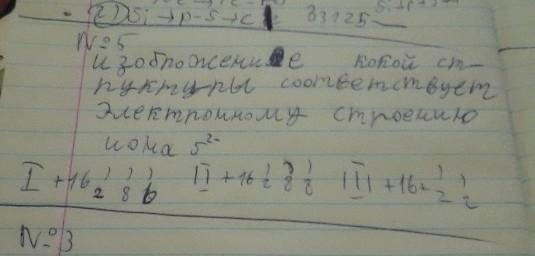 2) Si → p - S → Cl 83125
№5
изоброжение кокой ст-
руктуры соответствует
электронному строению
иона S²⁻
I +16 ) ) ) 2 8 6 II +16 ) ) ) 2 8 8 III +16 ) ) 2 2
№3